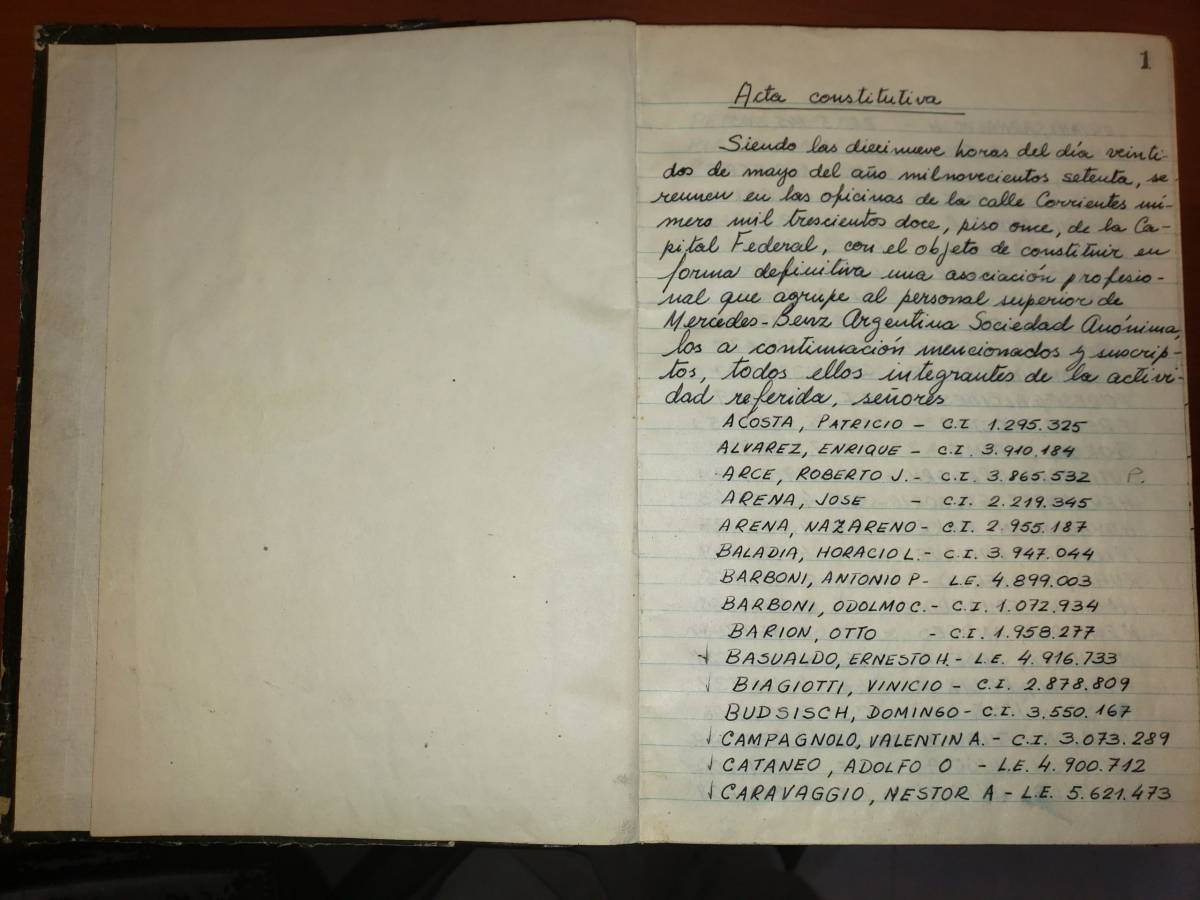 1
Acta constitutiva
Siendo las diecinueve horas del día veinti-
dos de mayo del año milnovecientos setenta, se
reunen en las oficinas de la calle Corrientes nú-
mero mil trescientos doce, piso once, de la Ca-
pital Federal, con el objeto de constituir en
forma definitiva una asociación profesio-
nal que agrupe al personal superior de
Mercedes-Benz Argentina Sociedad Anónima,
los a continuación mencionados y suscrip-
tos, todos ellos integrantes de la activi-
dad referida, señores
ACOSTA, PATRICIO - C.I. 1.295.325
ALVAREZ, ENRIQUE - C.I. 3.910.184
ARCE, ROBERTO J. - C.I. 3.865.532 P.
ARENA, JOSE - C.I. 2.219.345
ARENA, NAZARENO - C.I. 2.955.187
BALADIA, HORACIO L. - C.I. 3.947.044
BARBONI, ANTONIO P - L.E. 4.899.003
BARBONI, ODOLMO C. - C.I. 1.072.934
BARION, OTTO - C.I. 1.958.277
√ BASUALDO, ERNESTO H. - L.E. 4.916.733
√ BIAGIOTTI, VINICIO - C.I. 2.878.809
BUDSISCH, DOMINGO - C.I. 3.550.167
√ CAMPAGNOLO, VALENTIN A. - C.I. 3.073.289
√ CATANEO, ADOLFO O - L.E. 4.900.712
√ CARAVAGGIO, NESTOR A - L.E. 5.621.473